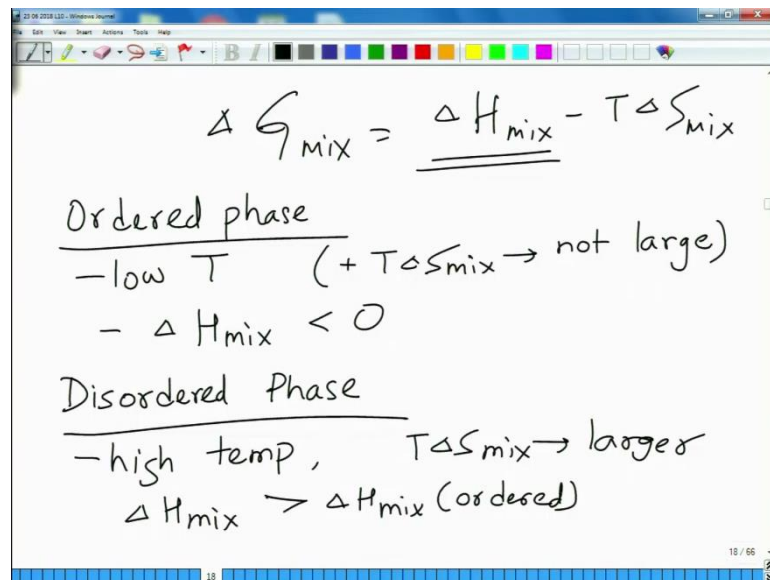 23 06 2018 L10 - Windows Journal
File Edit View Insert Actions Tools Help
B I
Δ G mix = Δ H mix - T Δ S mix
Ordered phase
- low T (+ T Δ S mix → not large)
- Δ H mix < 0
Disordered Phase
- high temp, T Δ S mix → larger
Δ H mix > Δ H mix (ordered)
18 / 66
18